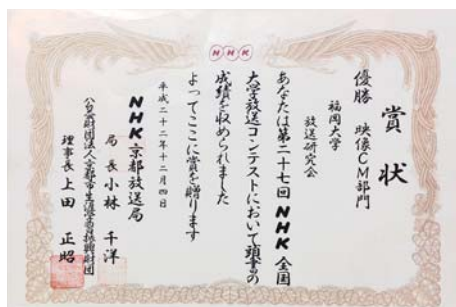 NHK
賞状
優勝 映像CM部門
福岡大学
放送研究会
あなたは第二十七回NHK全国
大学放送コンテストにおいて頭書の
成績を収められました
よってここに賞を贈ります
平成二十二年十二月四日
NHK京都放送局
局長 小林 千洋
公益財団法人京都市生涯学習振興財団
理事長 上田 正昭